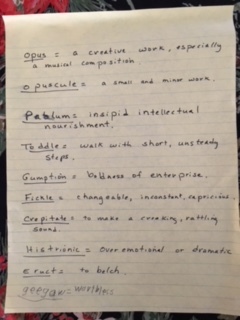 Opus = a creative work, especially
a musical composition
Opuscule = a small and minor work.
Pablum = insipid intellectual
nourishment.
Toddle = walk with short, unsteady
steps.
Gumption = boldness of enterprise.
Fickle = changeable, inconstant, capricious.
Crepitate = to make a creaking, rattling
sound.
Histrionic = Over emotional or dramatic
Eruct = to belch.
geegaw =